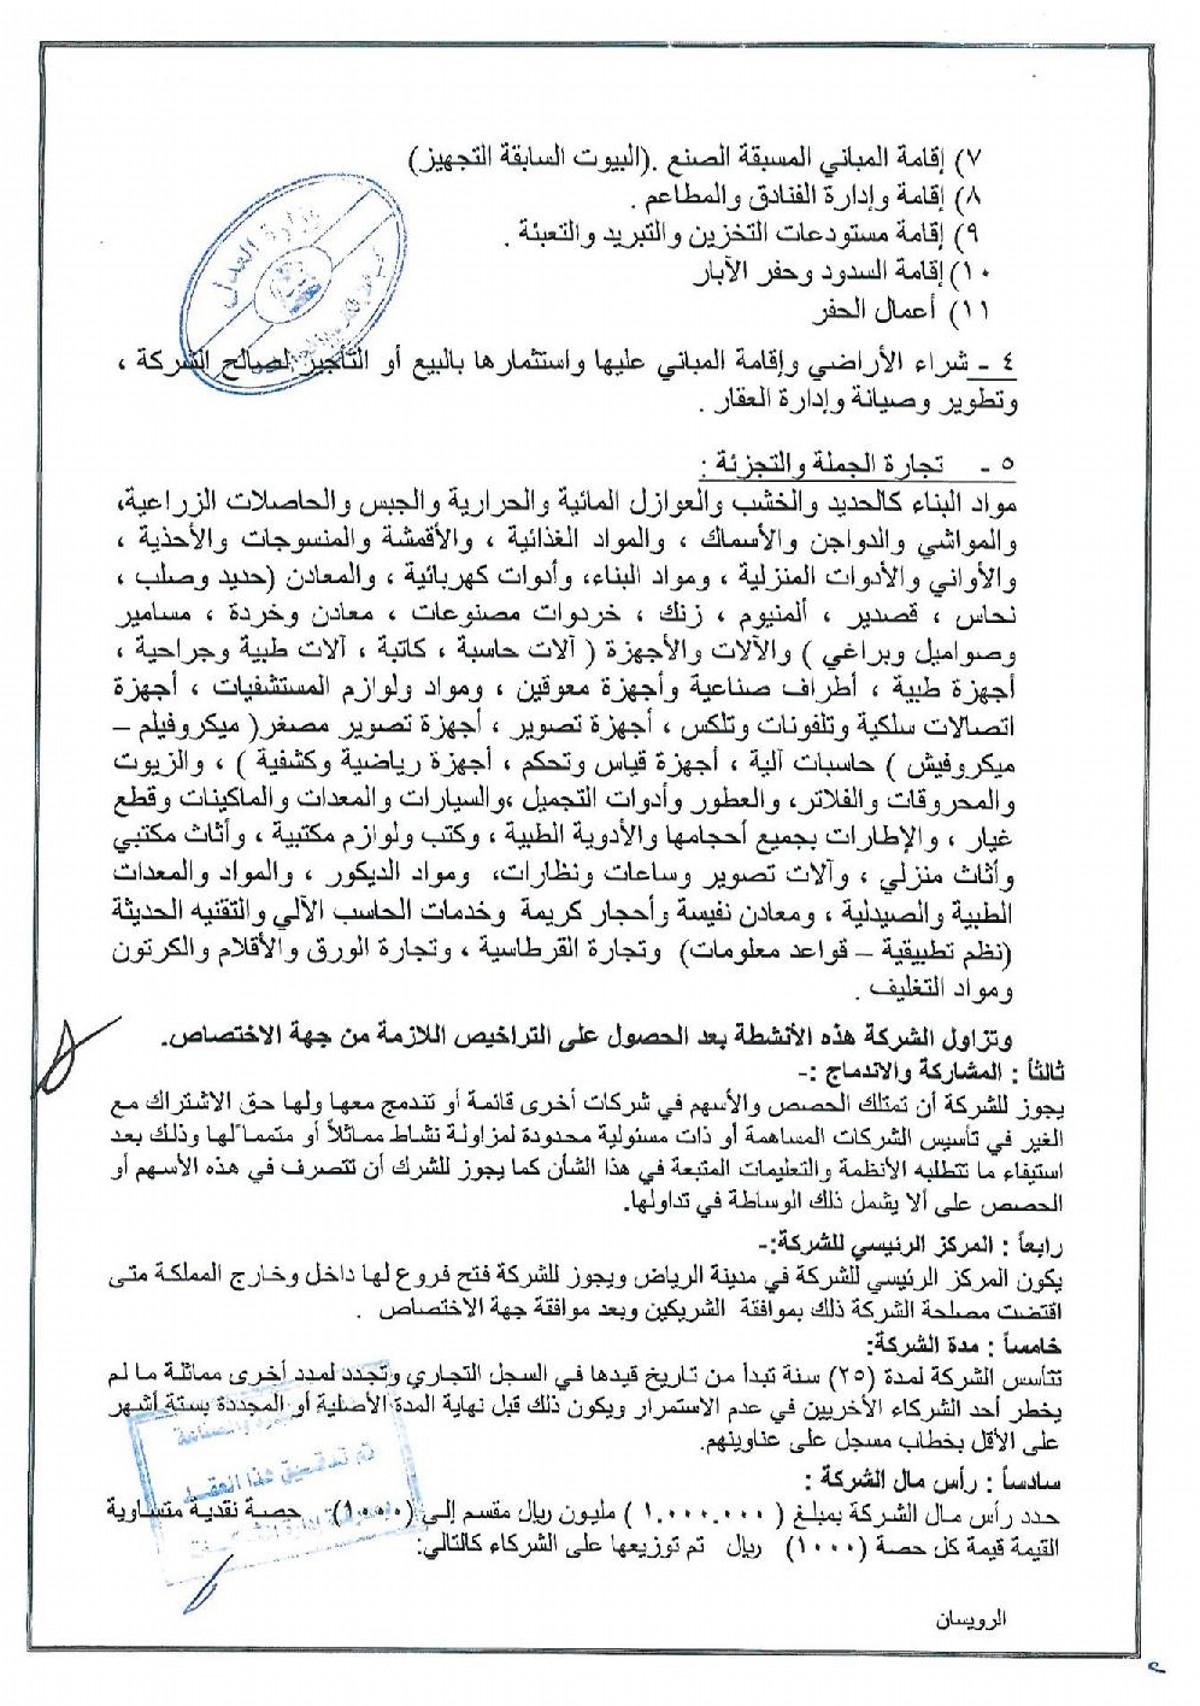 ٧) إقامة المباني المسبقة الصنع .(البيوت السابقة التجهيز)
٨) إقامة وإدارة الفنادق والمطاعم .
٩) إقامة مستودعات التخزين والتبريد والتعبئة .
١٠) إقامة السدود وحفر الآبار
١١) أعمال الحفر
وزارة العدل
٤ - شراء الأراضي وإقامة المباني عليها واستثمارها بالبيع أو التأجير لصالح الشركة ،
وتطوير وصيانة وإدارة العقار .
٥ - تجارة الجملة والتجزئة :
مواد البناء كالحديد والخشب والعوازل المائية والحرارية والجبس والحاصلات الزراعية،
والمواشي والدواجن والأسماك ، والمواد الغذائية ، والأقمشة والمنسوجات والأحذية ،
والأواني والأدوات المنزلية ، ومواد البناء، وأدوات كهربائية ، والمعادن (حديد وصلب ،
نحاس ، قصدير ، ألمنيوم ، زنك ، خردوات مصنوعات ، معادن وخردة ، مسامير
وصواميل وبراغي ) والآلات والأجهزة ( آلات حاسبة ، كاتبة ، آلات طبية وجراحية ،
أجهزة طبية ، أطراف صناعية وأجهزة معوقين ، ومواد ولوازم المستشفيات ، أجهزة
اتصالات سلكية وتلفونات وتلكس ، أجهزة تصوير ، أجهزة تصوير مصغر( ميكروفيلم –
ميكروفيش ) حاسبات آلية ، أجهزة قياس وتحكم ، أجهزة رياضية وكشفية ) ، والزيوت
والمحروقات والفلاتر، والعطور وأدوات التجميل ،والسيارات والمعدات والماكينات وقطع
غيار ، والإطارات بجميع أحجامها والأدوية الطبية ، وكتب ولوازم مكتبية ، وأثاث مكتبي
وأثاث منزلي ، وآلات تصوير وساعات ونظارات، ومواد الديكور ، والمواد والمعدات
الطبية والصيدلية ، ومعادن نفيسة وأحجار كريمة وخدمات الحاسب الآلي والتقنيه الحديثة
(نظم تطبيقية – قواعد معلومات) وتجارة القرطاسية ، وتجارة الورق والأقلام والكرتون
ومواد التغليف .
وتزاول الشركة هذه الأنشطة بعد الحصول على التراخيص اللازمة من جهة الاختصاص.
ثالثاً : المشاركة والاندماج :-
يجوز للشركة أن تمتلك الحصص والأسهم في شركات أخرى قائمة أو تندمج معها ولها حق الاشتراك مع
الغير في تأسيس الشركات المساهمة أو ذات مسئولية محدودة لمزاولة نشاط مماثلاً أو متمماً لها وذلك بعد
استيفاء ما تتطلبه الأنظمة والتعليمات المتبعة في هذا الشأن كما يجوز للشرك أن تتصرف في هذه الأسهم أو
الحصص على ألا يشمل ذلك الوساطة في تداولها.
رابعاً : المركز الرئيسي للشركة:-
يكون المركز الرئيسي للشركة في مدينة الرياض ويجوز للشركة فتح فروع لها داخل وخارج المملكة متى
اقتضت مصلحة الشركة ذلك بموافقة الشريكين وبعد موافقة جهة الاختصاص .
خامساً : مدة الشركة:
تتأسس الشركة لمدة (٢٥) سنة تبدأ من تاريخ قيدها في السجل التجاري وتجدد لمدد أخرى مماثلة ما لم
يخطر أحد الشركاء الأخريين في عدم الاستمرار ويكون ذلك قبل نهاية المدة الأصلية أو المجددة بستة أشهر
على الأقل بخطاب مسجل على عناوينهم.
تم تدقيق هذا العقد
سادساً : رأس مال الشركة :
حدد رأس مال الشركة بمبلغ ( ١.٠٠٠.٠٠٠ ) مليون ريال مقسم إلى (١٠٠٠) حصة نقدية متساوية
القيمة قيمة كل حصة (١٠٠٠) ريال تم توزيعها على الشركاء كالتالي:
الرويسان